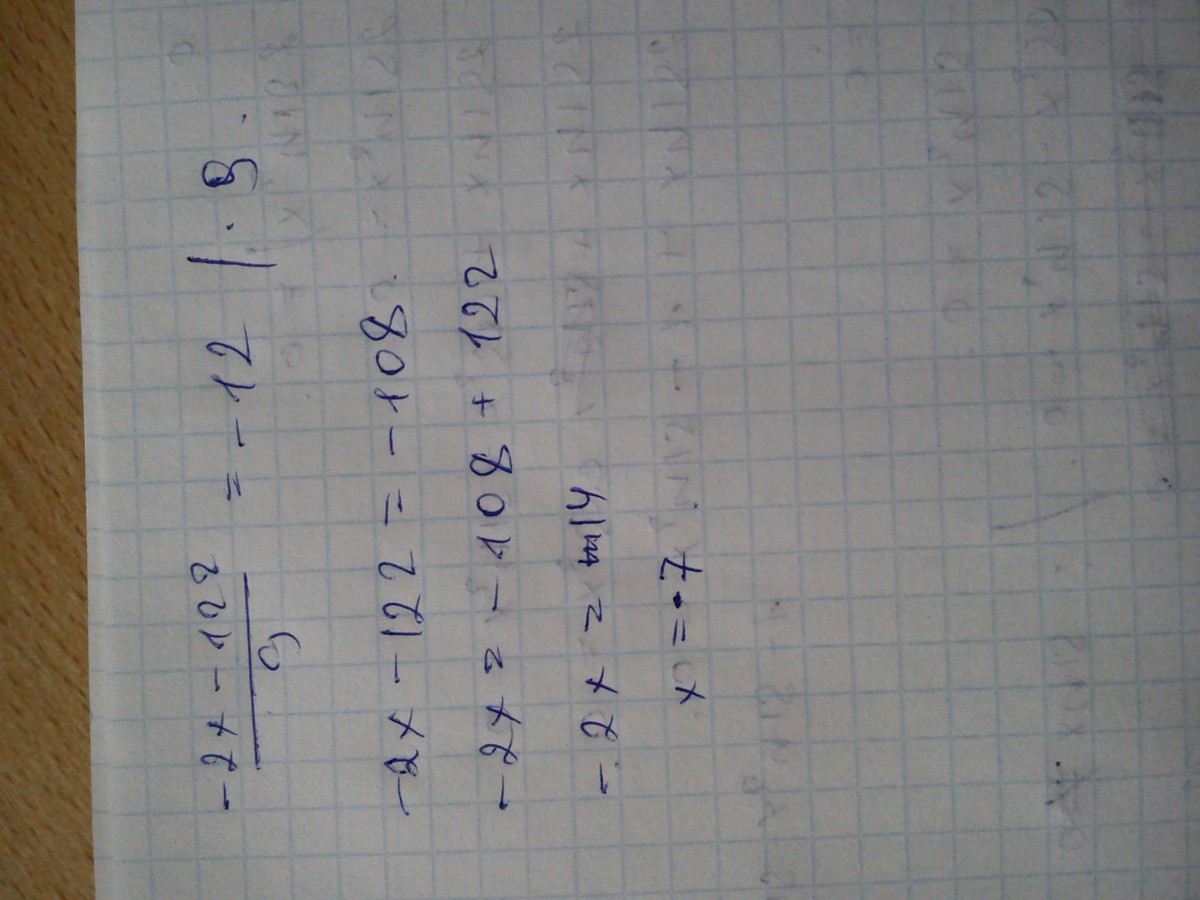 -2x - 122 / 9 = -12 | · 9
-2x - 122 = -108
-2x = -108 + 122
-2x = 14
x = -7